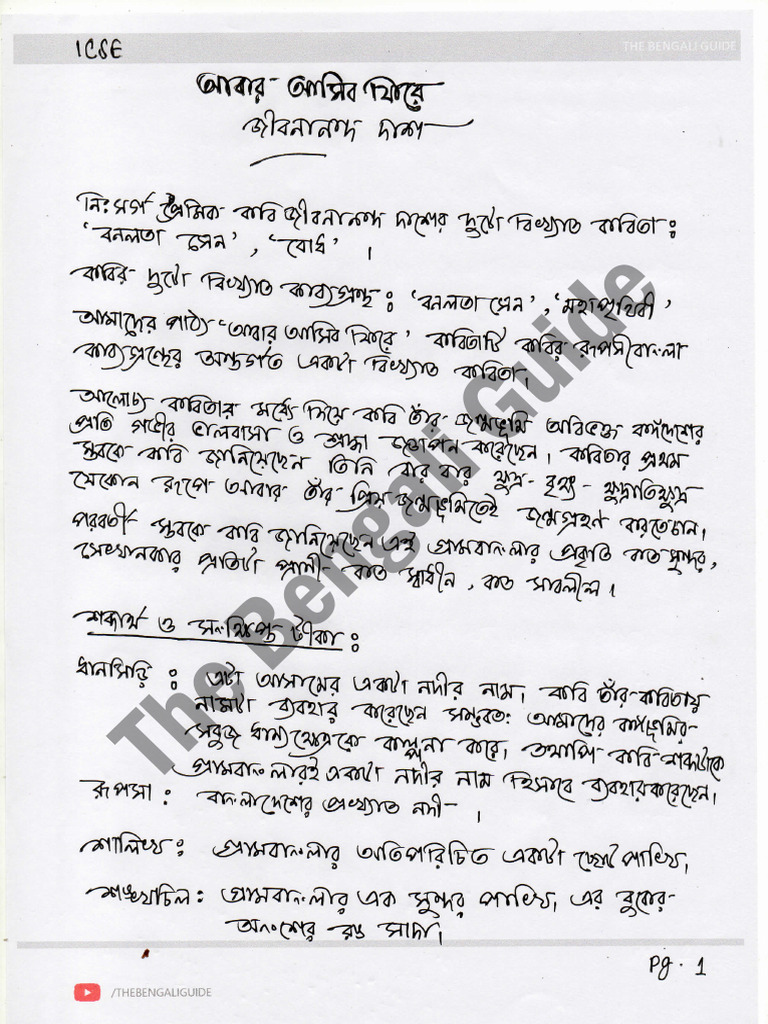 ICSE
THE BENGALI GUIDE
আবার আসিব ফিরে
জীবনানন্দ দাশ
নিঃসর্গ প্রেমিক কবি জীবনানন্দ দাশের দুটো বিখ্যাত কবিতা :
'বনলতা সেন', 'বোধ' ।
কবির দুটো বিখ্যাত কাব্যগ্রন্থ : 'বনলতা সেন', 'মহাপৃথিবী'
আমাদের পাঠ্য 'আবার আসিব ফিরে' কবিতাটি কবির রূপসী বাংলা
কাব্যগ্রন্থের অন্তর্গত একটা বিখ্যাত কবিতা।
আলোচ্য কবিতার মধ্যে দিয়ে কবি তাঁর জন্মভূমি অবিভক্ত বঙ্গদেশের
প্রতি গভীর ভালবাসা ও শ্রদ্ধা জ্ঞাপন করেছেন। কবিতার প্রথম
স্তবকে কবি জানিয়েছেন তিনি বার বার ক্ষুদ্র-বৃহৎ-ক্ষুদ্রাতিক্ষুদ্র
যেকোন রূপে আবার তাঁর প্রিয় জন্মভূমিতেই জন্মগ্রহণ করতে চান।
পরবর্তী স্তবকে কবি জানিয়েছেন এই গ্রামবাংলার প্রকৃতি কত সুন্দর,
সেখানকার প্রতিটা প্রাণী কত স্বাধীন, কত সাবলীল।
শব্দার্থ ও সংক্ষিপ্ত টীকা :
ধানসিড়ি : এটা আসামের একটা নদীর নাম। কবি তাঁর কবিতায়
নামটা ব্যবহার করেছেন সম্ভবতঃ আমাদের বঙ্গভূমির
সবুজ ধান্যক্ষেত্রকে কল্পনা করে, তথাপি কবি শব্দটাকে
গ্রামবাংলারই একটা নদীর নাম হিসাবে ব্যবহার করেছেন।
রূপসা : বাংলাদেশের প্রখ্যাত নদী ।
শালিখ : গ্রামবাংলার অতিপরিচিত একটা ছোট পাখি,
শঙ্খচিল : গ্রামবাংলার এক সুন্দর পাখি, এর বুকের
অংশের রঙ সাদা।
Pg. 1
/THEBENGALIGUIDE
The Bengali Guide